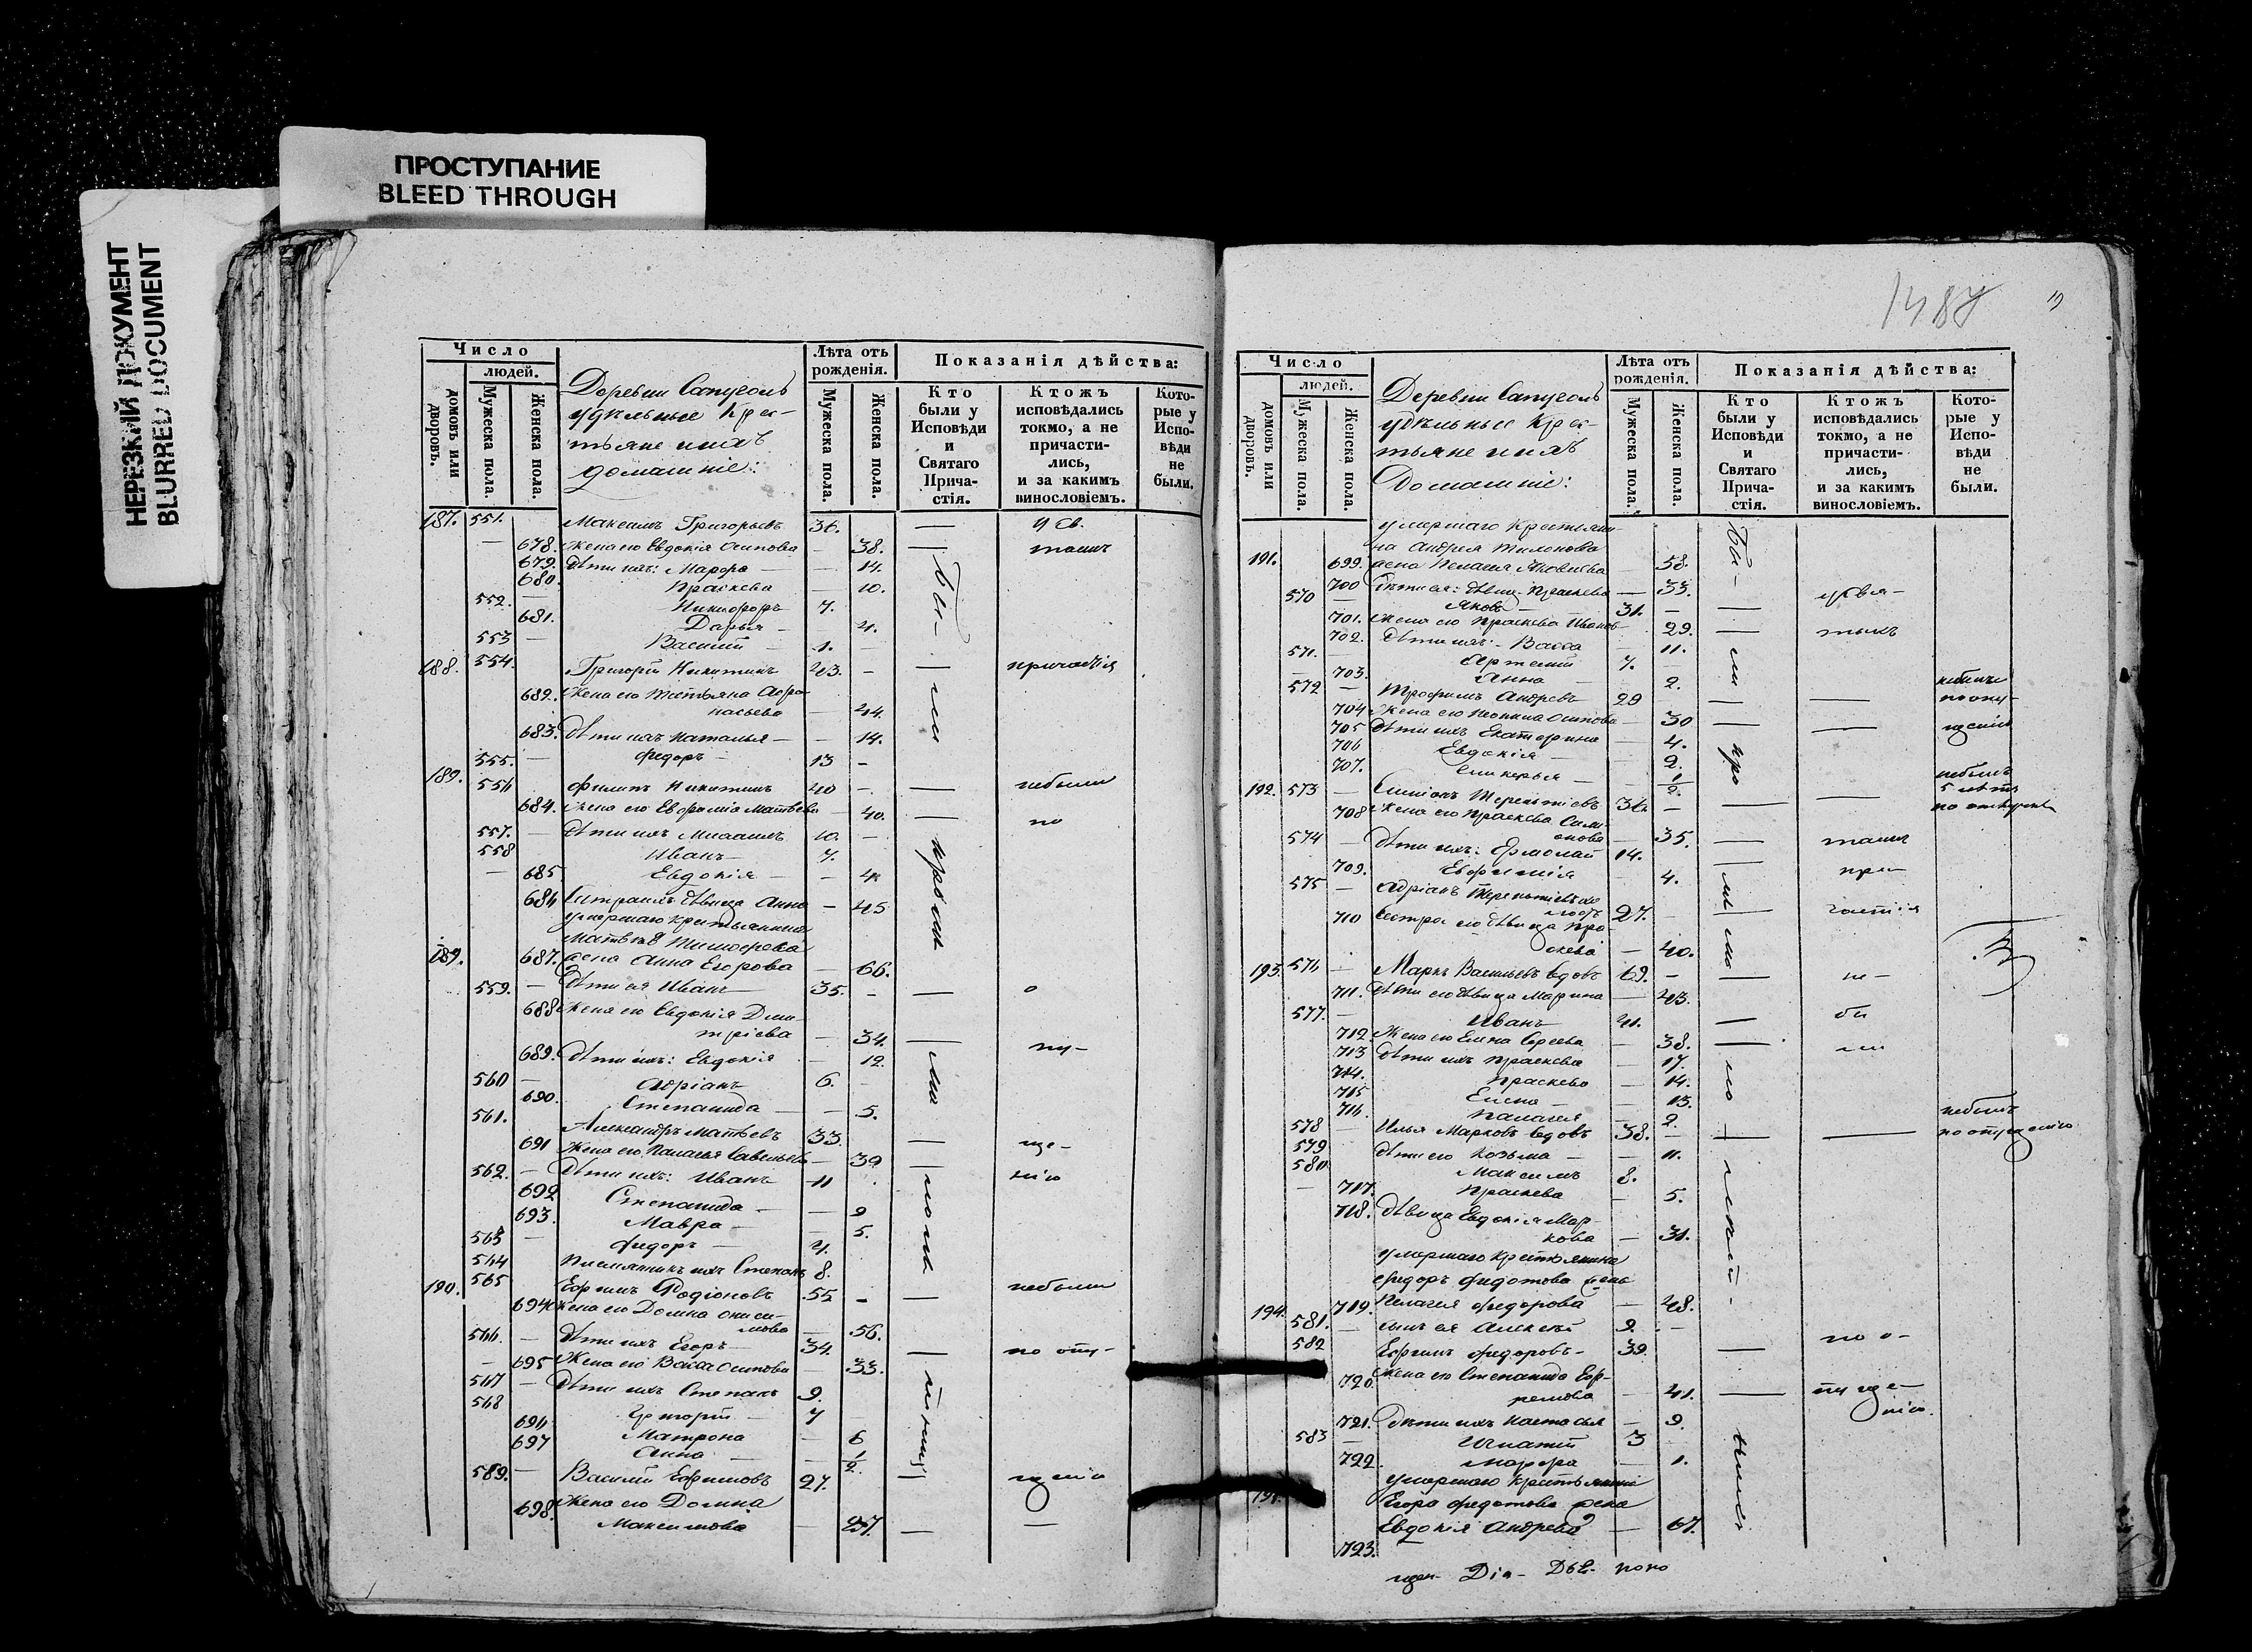 ПРОСТУПАНИЕ
BLEED THROUGH
НЕРЕЗКИЙ ДОКУМЕНТ
BLURRED DOCUMENT
Число
людей.
домовъ или дворовъ.
Мужеска пола.
Женска пола.
Деревни
удѣльные Крес-
тьяне и ихъ
домашніе:
Лѣта отъ рожденія.
Мужеска пола.
Женска пола.
Показанія дѣйства:
Кто были у Исповѣди и Святаго Прича-стія.
Ктожъ исповѣдались токмо, а не причасти-лись, и за какимъ винословіемъ.
Кото-рые у Испо-вѣди не были.
187. 551. Максимъ Григорьевъ 36.
678. Жена его Евдокія Осипова — 38.
679. Дѣти ихъ: Марфа — 14.
680. Праскева — 10.
552. Никифоръ 7.
681. Дарья — 4.
553 — Василій — 1.
188. 554. Григорій Никитинъ 43. — причастія
682. Жена его Татьяна Афа-
насьева — 44.
683. Дѣти ихъ Наталья — 14.
555. — Федоръ — 13 —
189. 556 Филипъ Никитинъ 40 — небыли
684. Жена его Евфимія Матвѣева 40. по
557. — Дѣти ихъ 10. —
558 Иванъ — 7.
685 Евдокія — 4
686 Сестра ихъ дѣвица Анна — 45
умершаго крестьянина
Матвѣя
189. 687. жена Анна Егорова — 66.
559. — Дѣти ея Иванъ 35. —
688 Жена его Евдокія Дми-
тріева — 34.
689. Дѣти ихъ: Евдокія — 12.
560 — Адріанъ 6. —
690. Степанида — 5.
561. Александръ Матвѣевъ 33. ще-
691 Жена его Палагья Савельева — 39
562. — Дѣти ихъ: Иванъ 11 нію
692 Степанида — 9
693. Мавра — 5.
563 — Федоръ — 4.
564 Племянникъ ихъ Степанъ 8.
190. 565 Ефимъ Родіоновъ 55 — небыли
694 Жена его Домна Ониси-
мова — 56.
566. — Дѣти ихъ Егоръ 34. по опу-
695 Жена его Васса Осипова — 33.
567 — Дѣти ихъ Степанъ 9.
568 Григорій — 7
696 Матрона — 6
697 Анна — 1/2
589. — Василій Ефимовъ 27. щенію
698. Жена его Домна
Максимова — 27. —
1487
Число
людей.
домовъ или дворовъ.
Мужеска пола.
Женска пола.
Деревни
удѣльные Крес-
тьяне и ихъ
Домашніе:
Лѣта отъ рожденія.
Мужеска пола.
Женска пола.
Показанія дѣйства:
Кто были у Исповѣди и Святаго Прича-стія.
Ктожъ исповѣдались токмо, а не причасти-лись, и за какимъ винословіемъ.
Кото-рые у Испо-вѣди не были.
умершаго Крестьяни-
на Андрея
191. 699. жена Пелагея Яковлева — 58.
700 Дѣти ея: дѣвица Праскева — 33.
570 — Яковъ — 31. —
701. Жена его Праскева Иванова 29.
702. Дѣти ихъ: Васса — 11.
571. — Артемій 7. —
703. Анна — 2.
572 — Трофимъ Андреевъ 29
704 Жена его Осипова — 30
705 Дѣти ихъ Екатерина — 4. щенію
706 Евдокія — 2.
707. Гликерья — 1/2.
192. 573 — Симіонъ Терентіевъ 36 —
708 Жена его Праскева Сими-
онова — 35.
574 — Дѣти ихъ: Ермолай 14.
709. Евфимія — 4. при
575 — Адріанъ Терентіевъ 27. — частія
710 Сестра его дѣвица Пра-
скева — 40.
193. 576 — Маркъ Васильевъ вдовъ 69. — не-
711. Дѣти его дѣвица Марина — 43.
577. — Иванъ 41. бы
712. Жена его Елена Сергѣева — 38. ли
713 Дѣти ихъ Праскева — 17.
714. Праскева — 14.
715 Елена — 13.
716 Палагея — 2.
578 — Илья Марковъ вдовъ 38. — по опущенію
579 Дѣти его Козьма — 11.
580 Максимъ 8.
717. Праскева — 5.
718. Дѣвица Евдокія Мар-
кова — 31.
умершаго Крестьянина
Федоръ Федотова жена
194. 719. Пелагея Федорова — 48.
581. — сынъ ея Алексѣй 9. —
582 Ефимъ Федоровъ — 39. по о-
720. Жена его Степанида Еф-
ремова — 41. пуще-
нію.
721. Дѣти ихъ Настасья — 9.
583 — Игнатій 3
722. Марфа — 1.
умершаго Крестьянина
Егора Федотова жена
Евдокія Андреева — 67.
723.